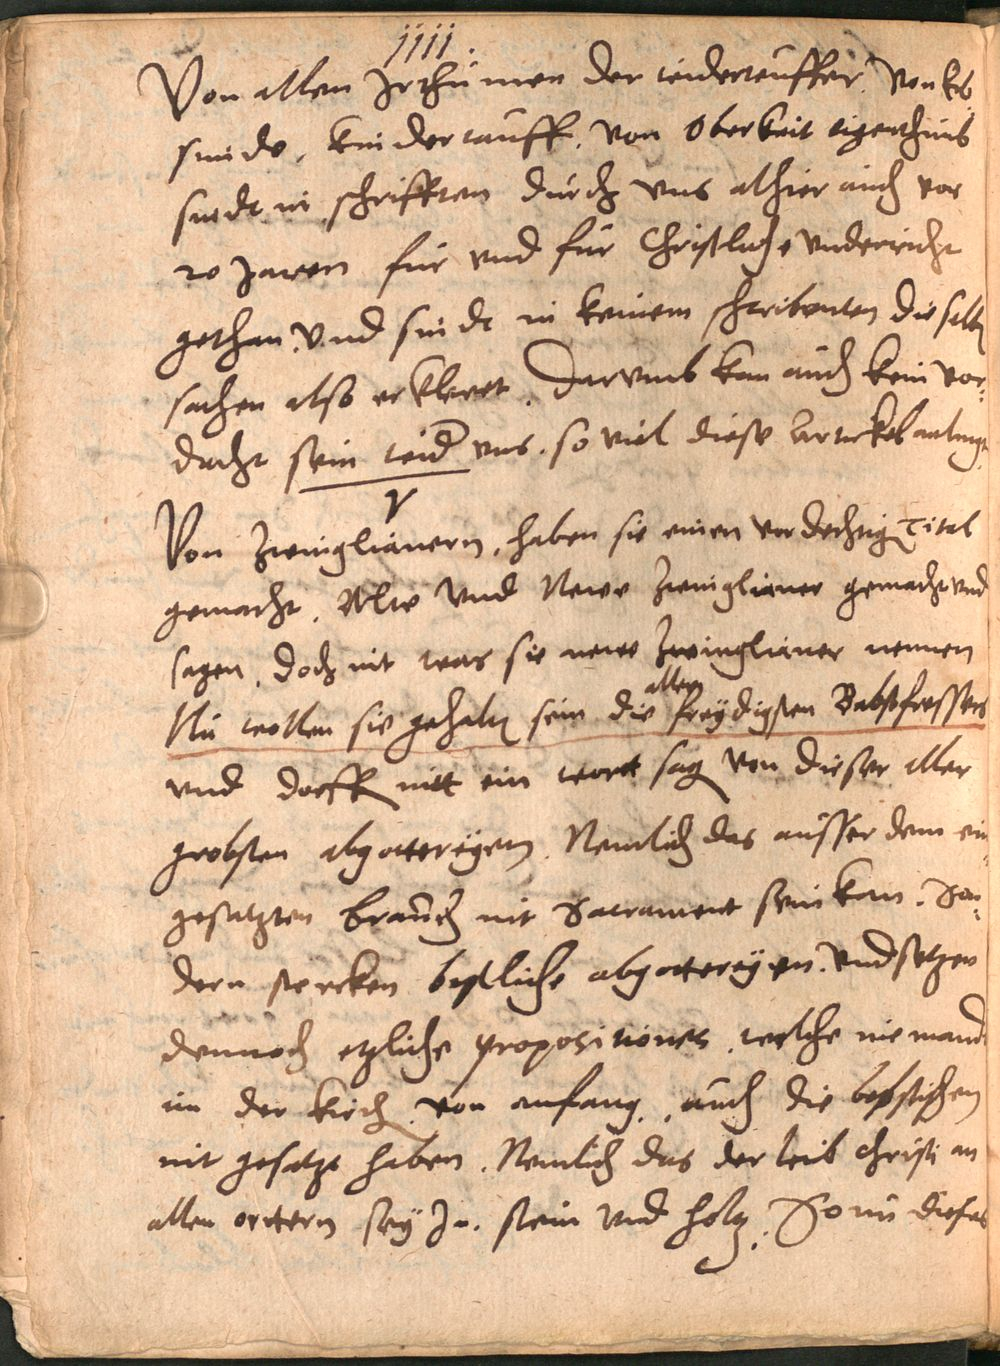 iiii.
Von allen Irthumen der widerteuffer, von erb
sunde, kinder tauff, von Oberkeit eigenthumb
sindt in schrifften durch vns alhier auch vor
20 Jaren fur vnd fur Christliche vnderricht
gethan. Vnd sindt in keinem scribenten dieselben
sachen also erkleret. Darumb kan auch kein vor-
dacht sein wider vns. so viel diese Artickel anlangt.
V
Von Zwinglianern, haben sie einen verdechtig Titel
gemacht, Alte vnd Newe Zwinglianer gemacht vnd
sagen, doch nit was sie newe Zwinglianer nennen
Nu wollen sie gehalten sein die allen freydigsten Babstfresser
vnd dorffen nitt ein wortt sagen von dieser aller
grobsten abgottereyen. Nemlich das ausser dem ein-
gesatzten brauch nit Sacrament sein kan. Son-
dern stercken bepstliche abgottereyen. vnd setzen
dennoch etzliche propositiones, welche niemandt
in der kirchen von anfang, auch die bepstischen
nit gesatzt haben. Nemlich das der leib Christi an
allen orttern sey In stein vnd holtz. So nu dieses